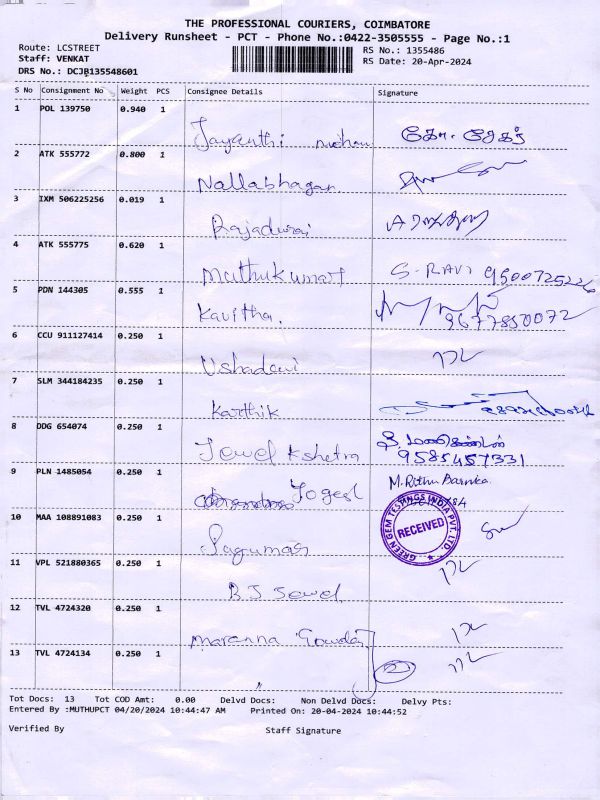 THE PROFESSIONAL COURIERS, COIMBATORE
Delivery Runsheet - PCT - Phone No.:0422-3505555 - Page No.:1
Route: LCSTREET
Staff: VENKAT
DRS No.: DCJB135548601
RS No.: 1355486
RS Date: 20-Apr-2024
S No Consignment No Weight PCS Consignee Details Signature
1 POL 139750 0.940 1 Jayanthi
2 ATK 555772 0.800 1 Nallabhagan
3 IXM 506225256 0.019 1 Rajadurai
4 ATK 555775 0.620 1 Muthukumar S. RAVI 9500725226
5 PDN 144305 0.555 1 Kavitha. 9677850072
6 CCU 911127414 0.250 1 Ushadevi
7 SLM 344184235 0.250 1 Karthik
8 DDG 654074 0.250 1 Jewel Kshetra தி. மணிகண்டன் 9585457331
9 PLN 1485054 0.250 1 Yogesh M. Rithu Barnika
10 MAA 108891083 0.250 1 GREEN GEM TESTINGS INDIA PVT. LTD. RECEIVED
11 VPL 521880365 0.250 1 B J Jewel
12 TVL 4724320 0.250 1 Marenna Gowder
13 TVL 4724134 0.250 1 " 2
Tot Docs: 13 Tot COD Amt: 0.00 Delvd Docs: Non Delvd Docs: Delvy Pts:
Entered By :MUTHUPCT 04/20/2024 10:44:47 AM Printed On: 20-04-2024 10:44:52
Verified By Staff Signature